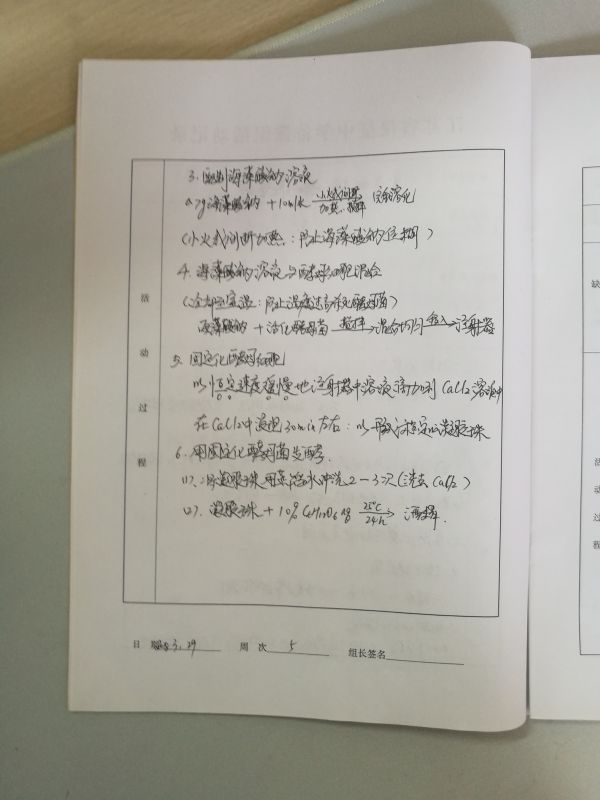 3. 配制海藻酸钠溶液
0.7g海藻酸钠 + 10ml水 小火或间断加热、搅拌→ 溶化
(小火或间断加热：防止海藻酸钠焦糊)
4. 海藻酸钠溶液与酵母细胞混合
(冷却至室温：防止温度过高杀死酵母菌)
海藻酸钠 + 活化酵母菌 搅拌→ 混合均匀 转入→ 注射器
5. 固定化酵母细胞
以恒定速度缓慢地注射器中溶液滴加到 CaCl2 溶液中
在 CaCl2中浸泡 30min左右：以形成稳定的凝胶珠
6. 用固定化酵母菌发酵.
(1). 凝胶珠用蒸馏水冲洗2－3次(洗去 CaCl2)
(2). 凝胶珠 + 10% C6H12O6 25℃ 24h→ 酒精.
活
动
过
程
日 期 3.29 周 次 5 组长签名
缺
活
动
过
程